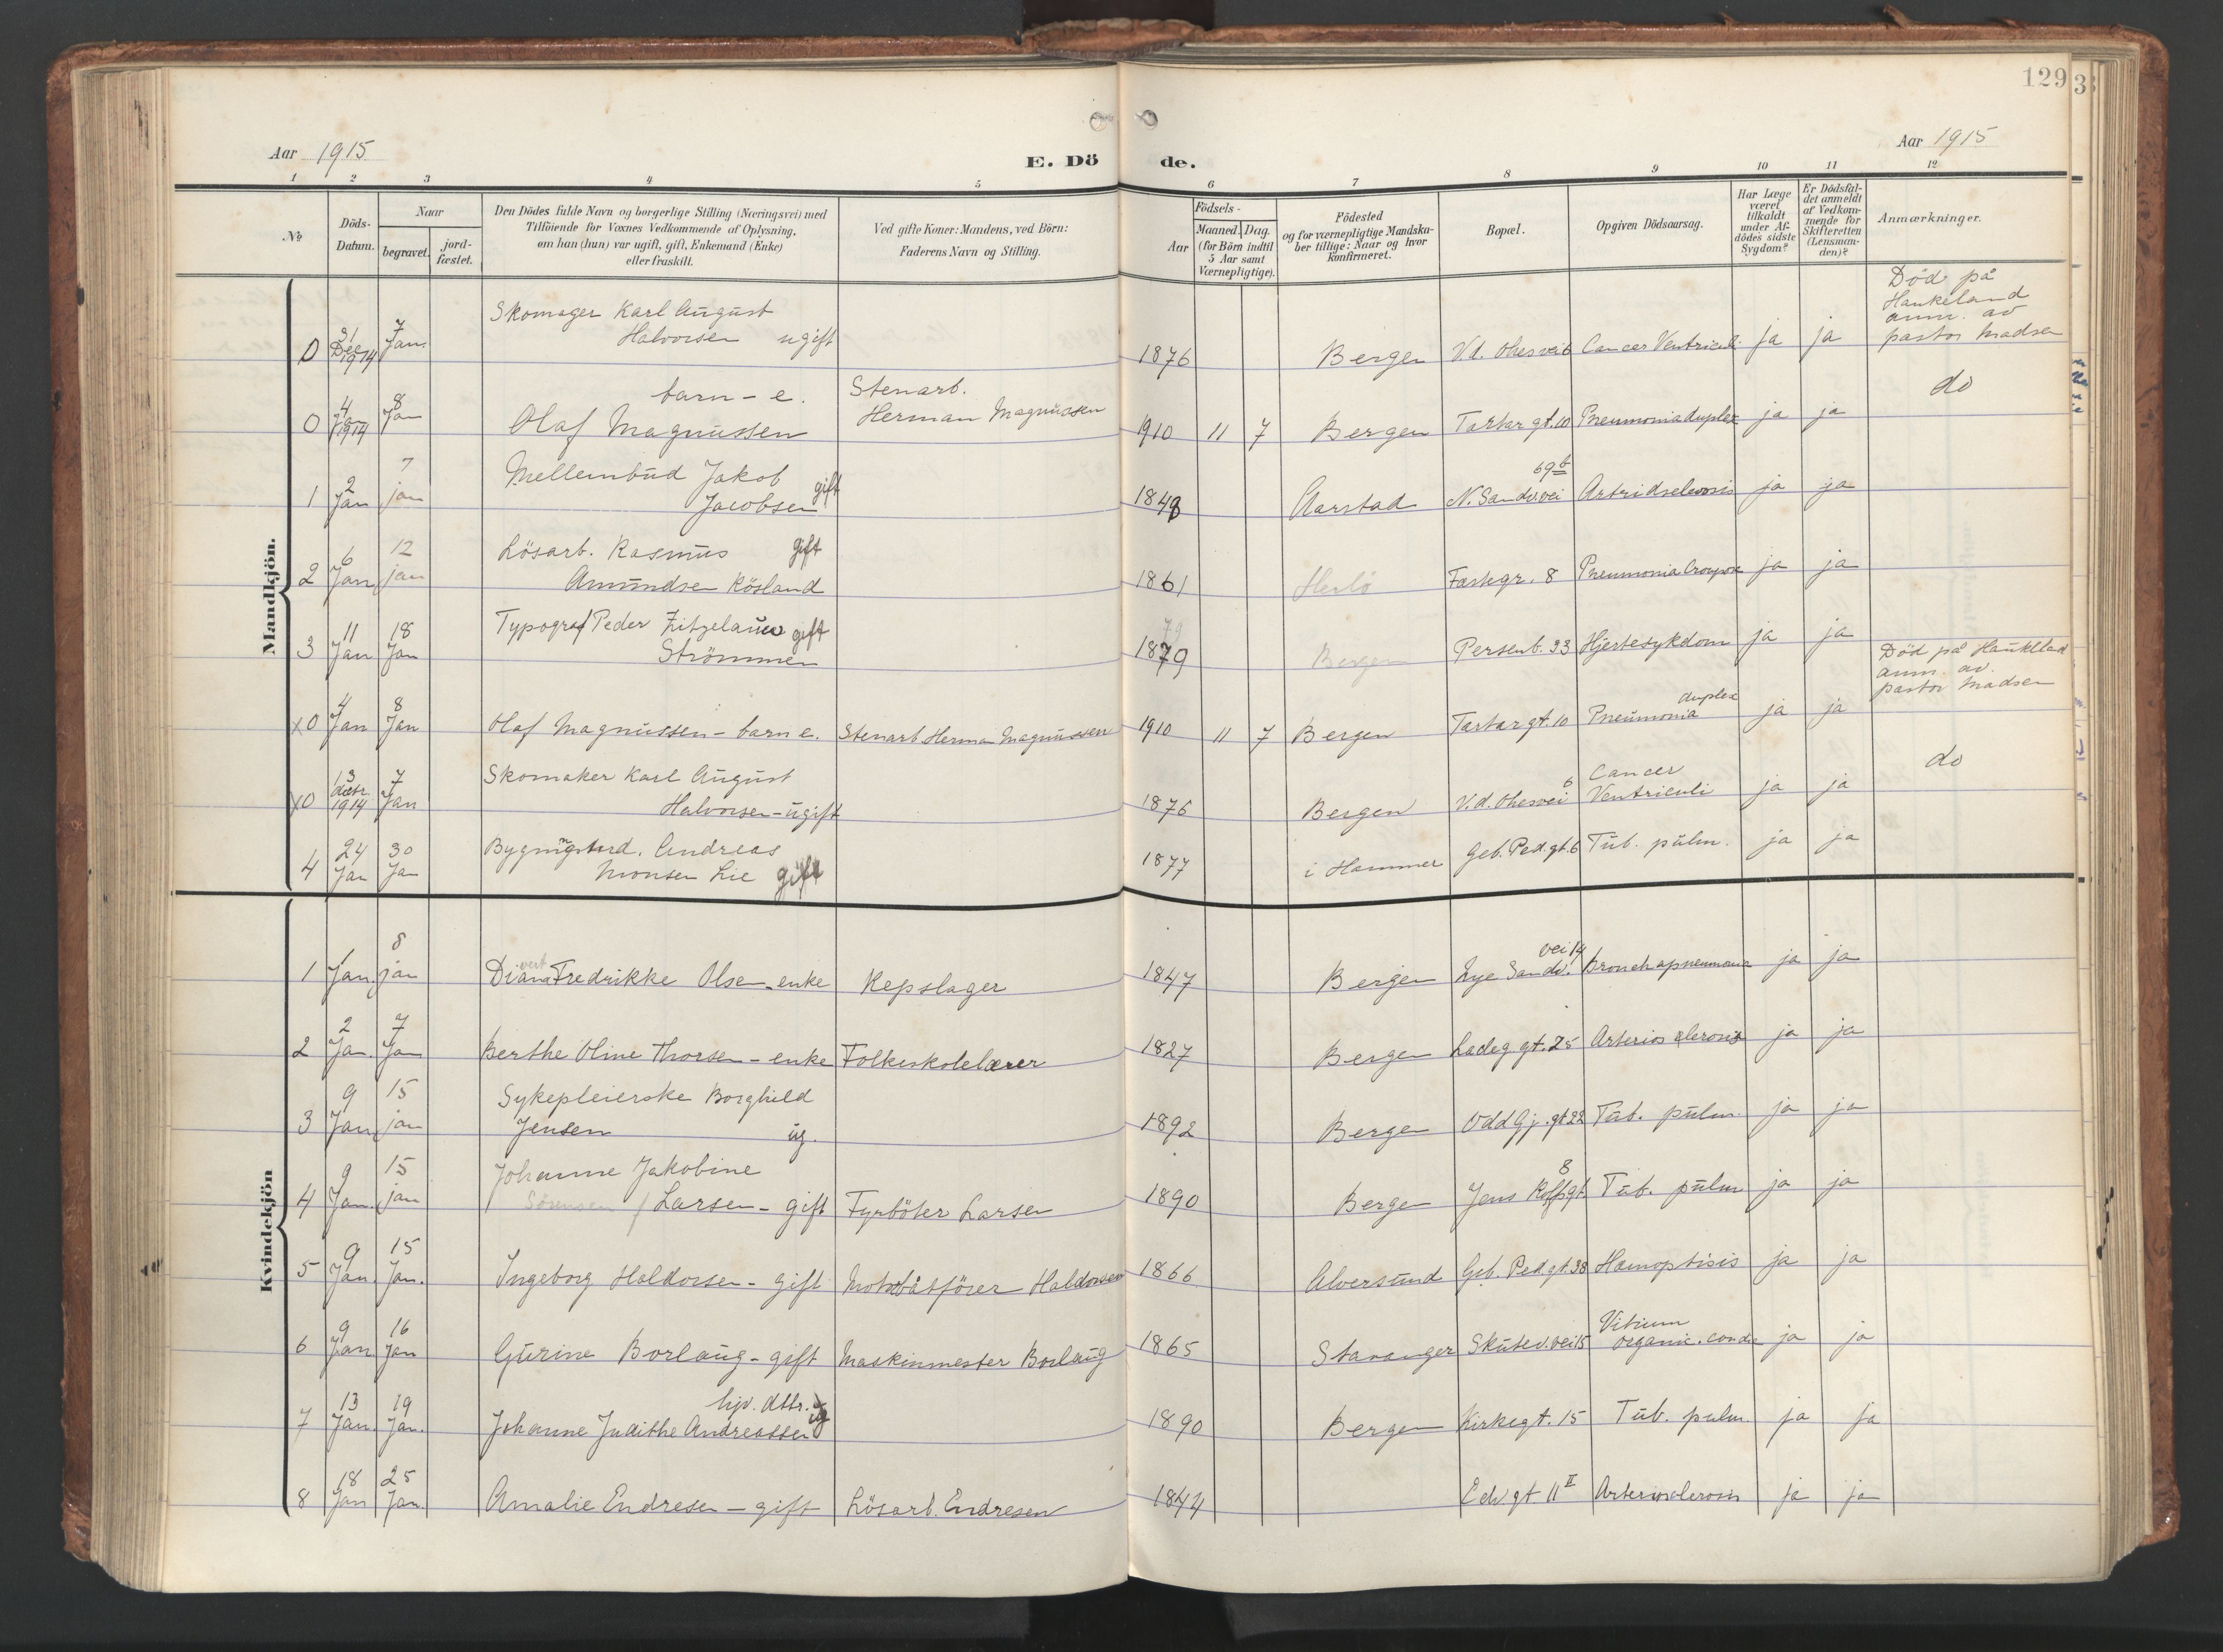 129
Aar 1915
E. Dö de.
Aar 1915
1 2 3 4 5 6 7 8 9 10 11 12
No
Döds-Datum.
Naar
begravet.
jord-fæstet.
Den Dödes fulde Navn og borgerlige Stilling (Næringsvei) med
Tilföiende for Voxnes Vedkommende af Oplysning,
om han (hun) var ugift, gift, Enkemand (Enke)
eller fraskilt.
Ved gifte Koner: Mandens, ved Börn:
Faderens Navn og Stilling.
Födsels-
Aar
Maaned. Dag.
(for Börn indtil
5 Aar samt
Værnepligtige).
Födested
og for værnepligtige Mandska-
ber tillige: Naar og hvor
konfirmeret.
Bopæl.
Opgiven Dödsaarsag.
Har Læge
været
tilkaldt
under Af-
dödes sidste
Sygdom?
Er Dödsfal-
det anmeldt
af Vedkom-
mende for
Skifteretten
(Lensman-
den)?
Anmærkninger.
Mandkjön.
0 31 Dec 1914 7 Jan. Skomager Karl August
Halvorsen ugift 1876 Bergen V.d. Ohesvei 6 Cancer Ventriculi ja ja
Död på
Haukeland
anm. av
pastor Madsen
0 4 Jan 1914 8 Jan barn - e. Stenarb.
Olaf Magnussen Herman Magnussen 1910 11 7 Bergen Tartargt. 10 Pneumonia duplex ja ja do
1 2 Jan 7 jan Mellembud Jakob
Jacobsen gift 1848 Aarstad N. Sandv.vei 69b Artridsclerosis ja ja
2 6 Jan 12 jan Lösarb. Rasmus gift
Amundsen Rösland 1861 Herlö Fastegr. 8 Pneumonia Crouposa ja ja
3 11 Jan 18 Jan Typograf Peder Zitzelauw gift
Strömmen 1879 Bergen Persenb. 33 Hjertesykdom ja ja
x0 4 Jan 8 Jan Olaf Magnussen - barn e. Stenarb. Herman Magnussen 1910 11 7 Bergen Tartargt. 10 Pneumonia duplex ja ja
Död på Haukeland
anm. av
pastor Madsen
x0 13 1914 7 Jan Skomaker Karl August
Halvorsen - ugift 1876 Bergen V.d. Ohesvei 6 Cancer
Ventriculi ja ja do
4 24 Jan 30 Ja Andreas
Monsen Lie gift 1877 i Hammer Geb. Ped.gt. 6 Tub. pulm. ja ja
Kvindekjön
1 1 Jan. 8 jan Diana Fredrikke Olsen - enke Repslager 1847 Bergen Nye Sandv.vei 14 Bronchopneumonia ja ja
2 2 Jan. 7 Jan Berthe Oline Thorsen - enke Folkeskolelærer 1827 Bergen Ladeg.gt. 25 Arteriosclerosis ja ja
3 9 Jan. 15 jan Sykepleierske Borghild
Jensen ug. 1892 Bergen Odd Gj. gt 22 Tub. pulm. ja ja
4 9 Jan. 15 jan Johanne Jakobine
Sörensen / Larsen - gift Fyrböter Larsen 1890 Bergen Jens Rolfsgt. 8 Tub. pulm ja ja
5 9 Jan. 15 Jan. Ingeborg Haldorsen - gift Motorbåtförer Haldorsen 1866 Alversund Geb. Ped.gt 38 Hæmoptisis ja ja
6 9 Jan 16 Jan Gurine Borlaug - gift Maskinmester Borlaug 1865 Stavanger Skutev.vei 15 Vitium
organic. cordis ja ja
7 13 Jan. 19 Jan. hjv. dttr. ug
Johanne Judithe Andreassen 1890 Bergen Kirkegt. 15 Tub. pulm. ja ja
8 18 Jan 25 Jan. Amalie Endresen - gift Lösarb. Endresen 1844 Edv gt 11 II Arteriosclerosis ja ja